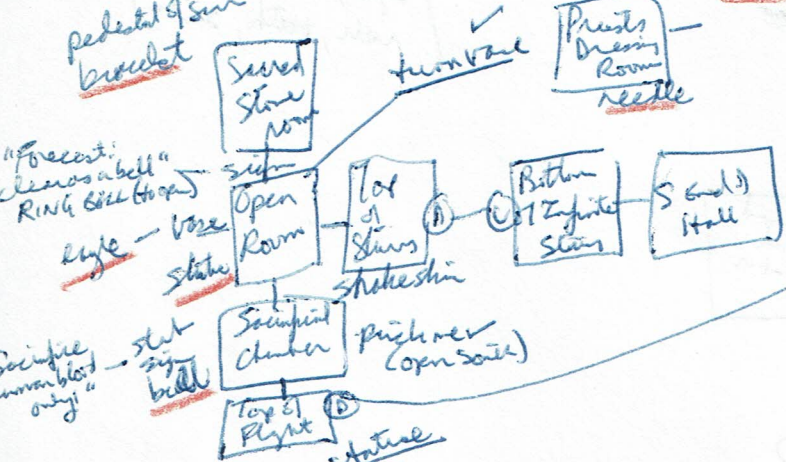 Pedestal of Sun
bracelet
Sacred
Stone
room
turn vase
Priests
Dressing
Room
needle
"Forecast:
clear as a bell"
RING BELL (to open)
sign
eagle - vase
statue
Open
Room
Top
of
Stairs
D
C
Bottom
of Infinite
Stairs
S End of
Hall
Sacrificial
Chamber
prick me
(open South)
Sacrifice
human blood
only!"
slot
sign
bell
Top of
Flight
D
statue